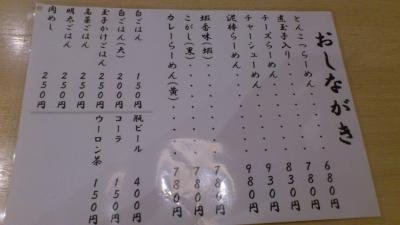 おしながき
とんこつらーめん・・・・・680円
煮玉子入り・・・・・780円
チーズらーめん・・・・・830円
チャーシューめん・・・・・930円
泥棒らーめん・・・・・980円
蝦香味(蝦)・・・・・780円
こがし(黒)・・・・・780円
カレーらーめん(黄)・・・・・780円
白ごはん 150円
白ごはん(大) 200円
玉子かけごはん 250円
高菜ごはん 250円
明太ごはん 250円
肉めし 250円
瓶ビール 400円
コーラ 150円
ウーロン茶 150円